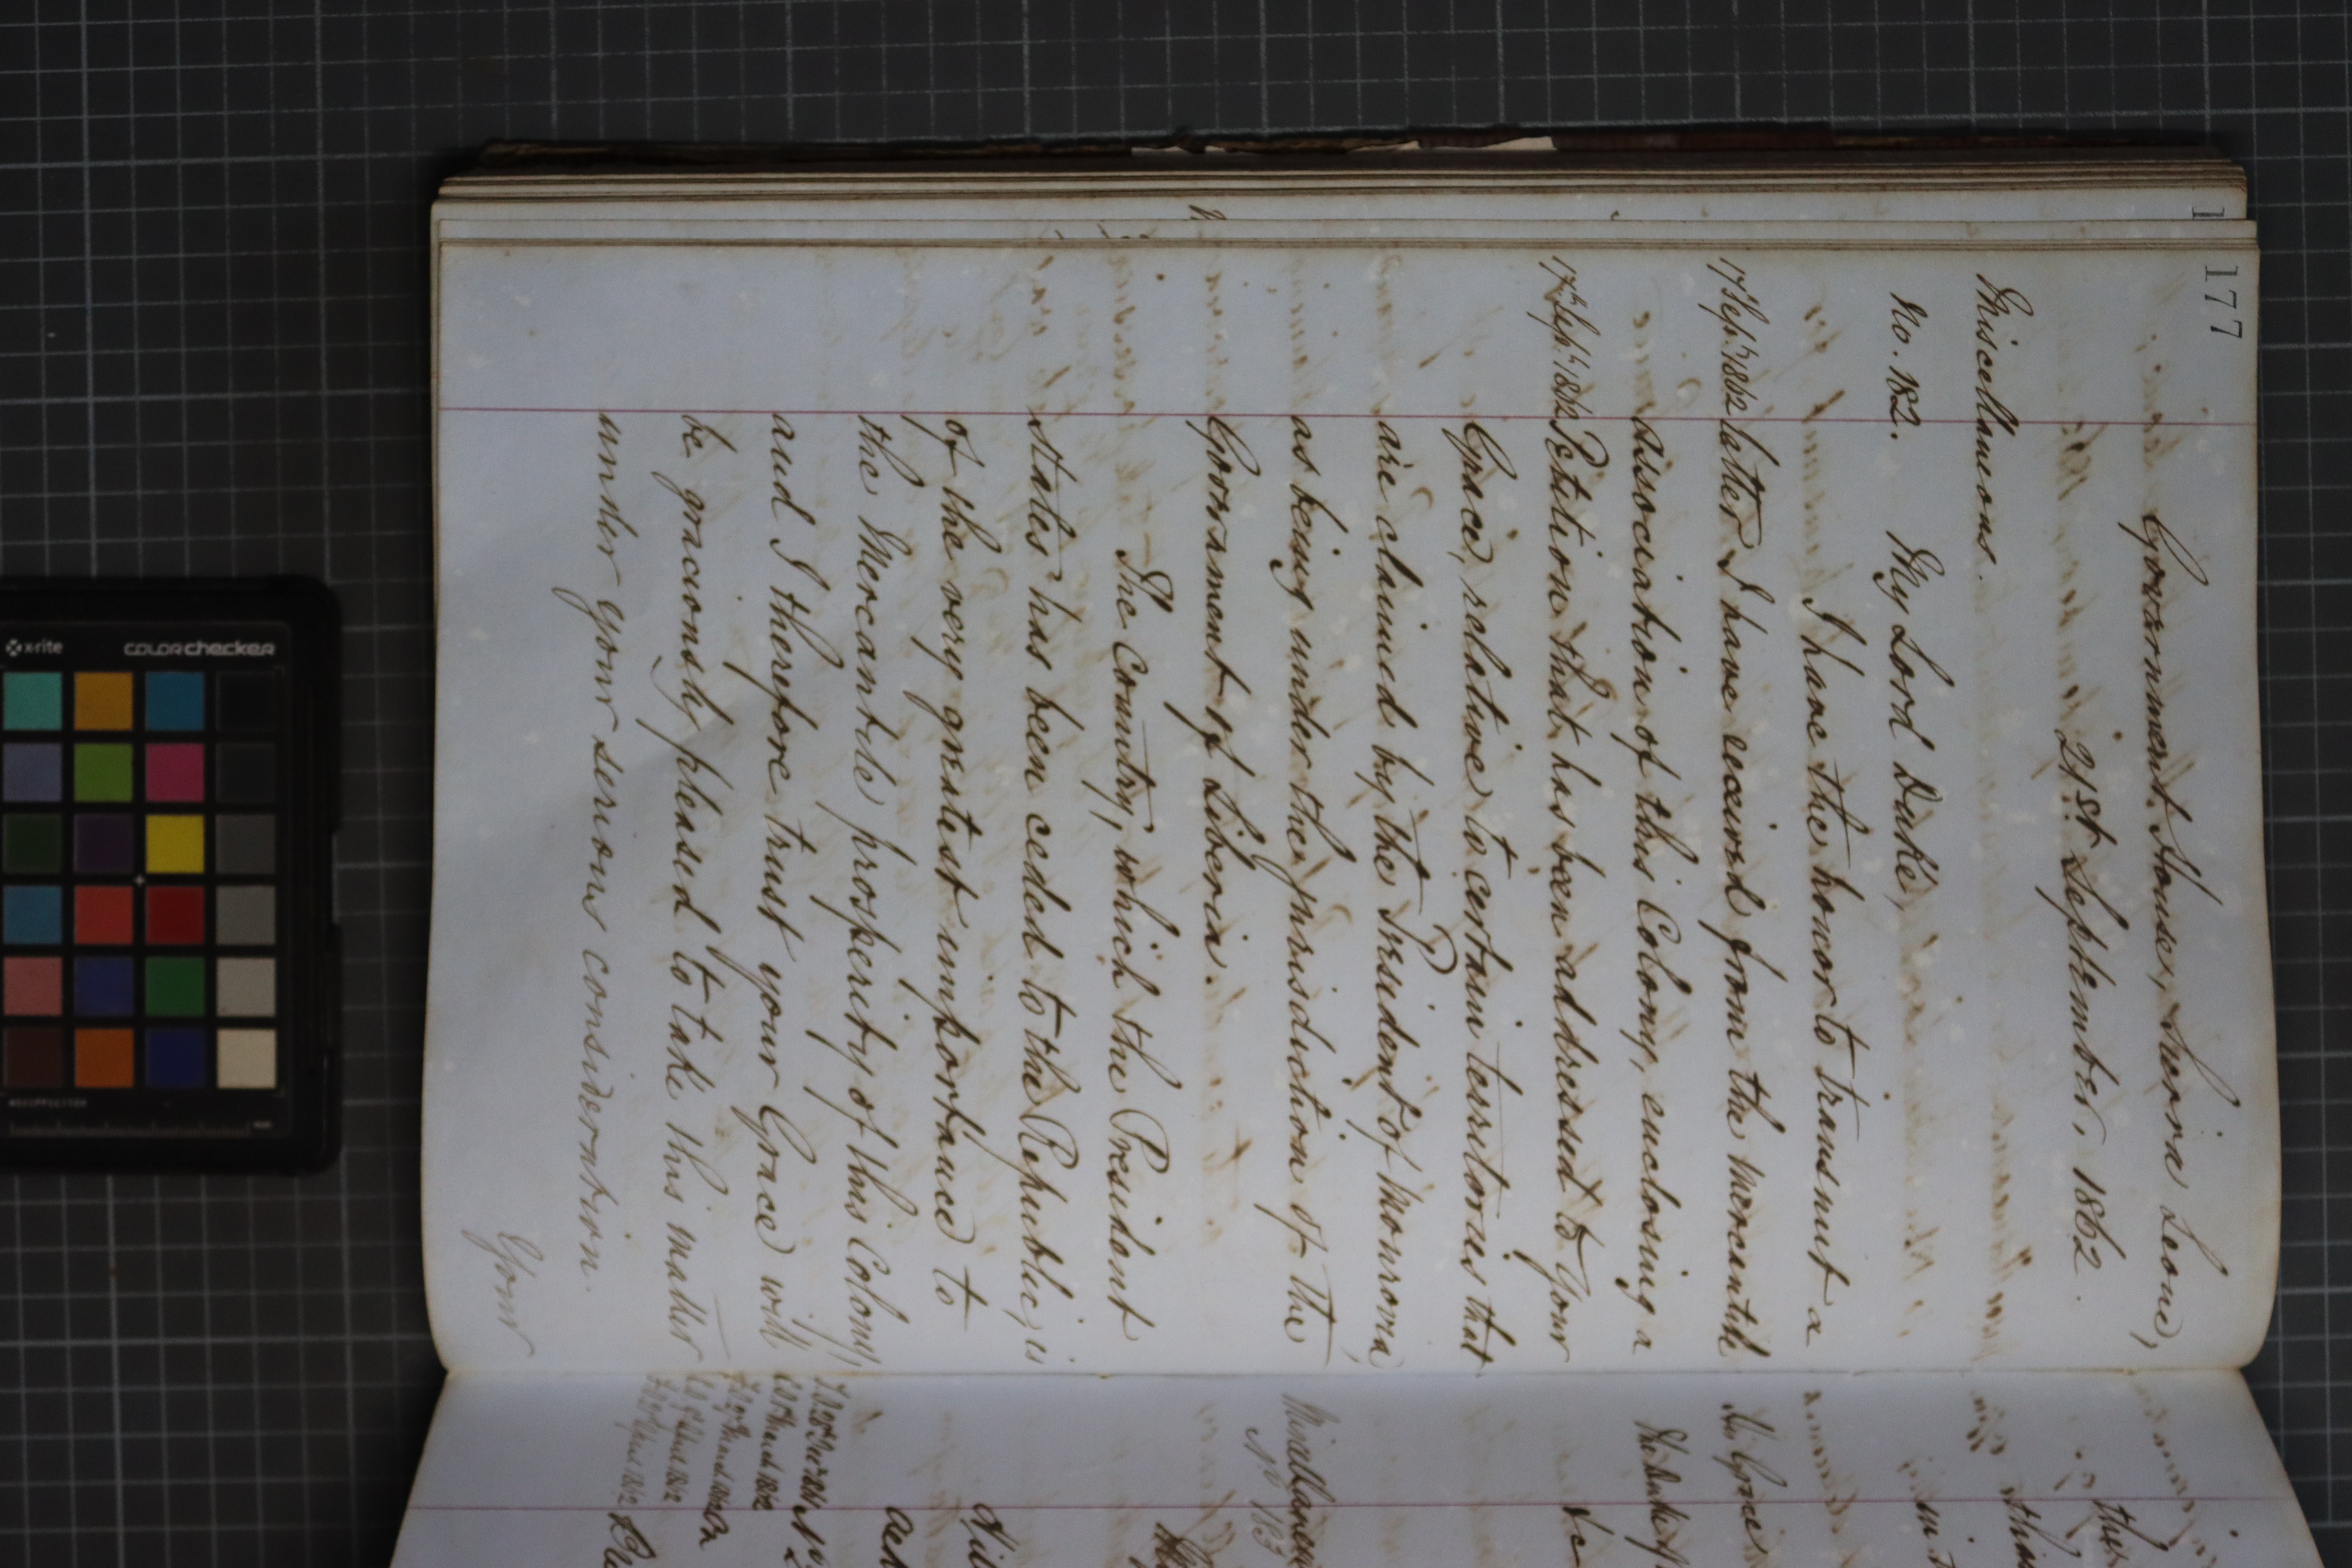 177
Government House, Sierra Leone,
21st September, 1862.
Miscellaneous.
No. 182. My Lord Duke,
I have the honor to transmit a
17 Sept. 1862 letter I have received from the Mercantile
Association of this Colony, enclosing a
17th Sept. 1862 Petition that has been addressed to Your
Grace, relative to certain territories that
are claimed by the President of Monrovia,
as being under the jurisdiction of the
Government of Liberia.
The Country, which the President
States has been ceded to the Republic, is
of the very greatest importance to
the Mercantile prosperity of this Colony,
and I therefore trust your Grace will
be graciously pleased to take this matter
under your serious consideration.
Your
the
in
His Grace
The Duke of
&c
Miscellaneous
No 183
x-rite
colorchecker